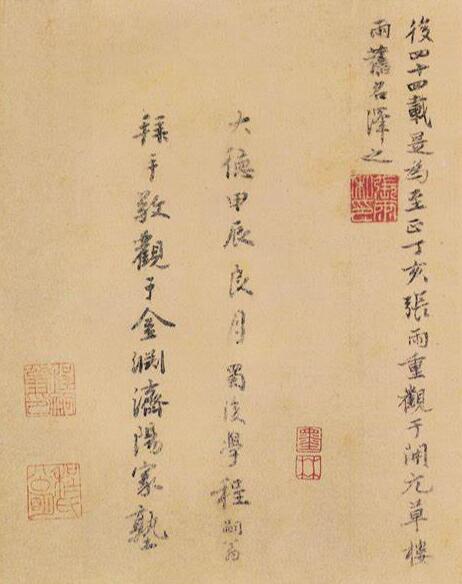 後四十四載是為至正丁亥張雨重觀于開元草樓
雨舊名澤之
大德甲辰良月蜀後學程嗣翁
拜手敬觀于金淵濟陽家塾
張雨私印
程氏